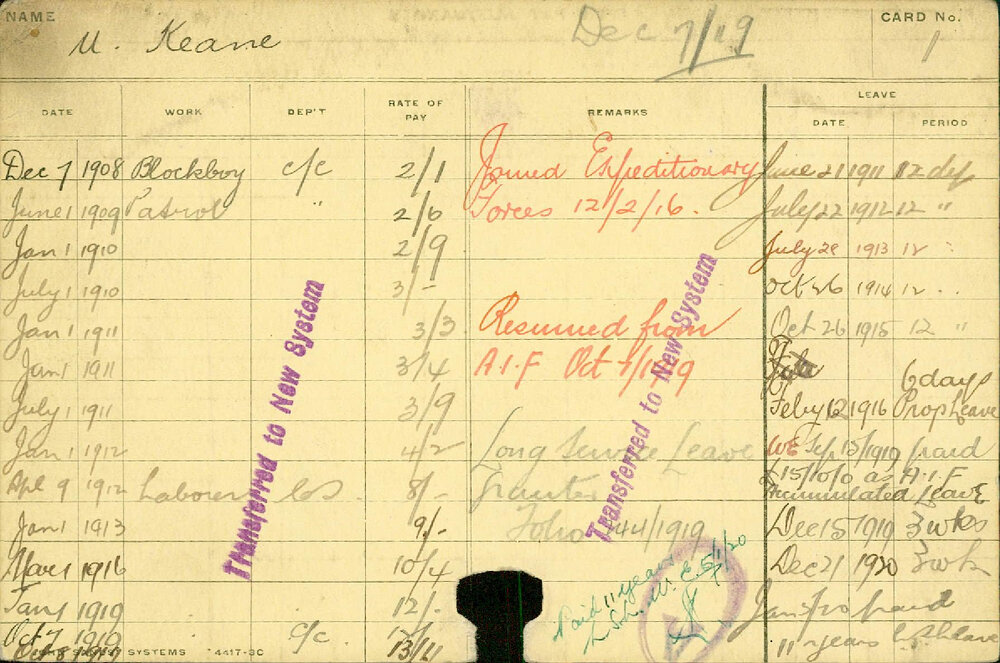 NAME U. Keane Dec 7/19 CARD No. 1
DATE WORK DEP'T RATE OF PAY REMARKS LEAVE
DATE PERIOD
Dec 7 1908 Blockboy c/c 2/1 Joined Expeditionary June 21 1911 12 dys
June 1 1909 Patrol " 2/6 Forces 12/2/16. July 22 1912 12 "
Jan 1 1910 2/9 July 28 1913 12 "
July 1 1910 3/- Oct 26 1914 12 "
Jan 1 1911 3/3 Resumed from Oct 26 1915 12 "
Jan 1 1911 3/4 A.I.F Oct 7/1919 6 days
July 1 1911 3/9 Feby 12 1916 Prop Leave
Jan 1 1912 4/2 Long Service Leave WE Sep 15/1919 paid
Apl 9 1912 Laborer 8/- Granted £15/10/0 as A.I.F
Accumulated Leave
Jan 1 1913 9/- Folio 44/1919 Dec 15 1919 3 wks
Mar 1 1916 10/4 Dec 21 1920 3 wks
Jan 1 1919 12/- paid
Oct 7 1919 c/c. 13/11 11 years
Paid 11 years
Transferred to New System
Transferred to New System
SYSTEMS 4417-3C